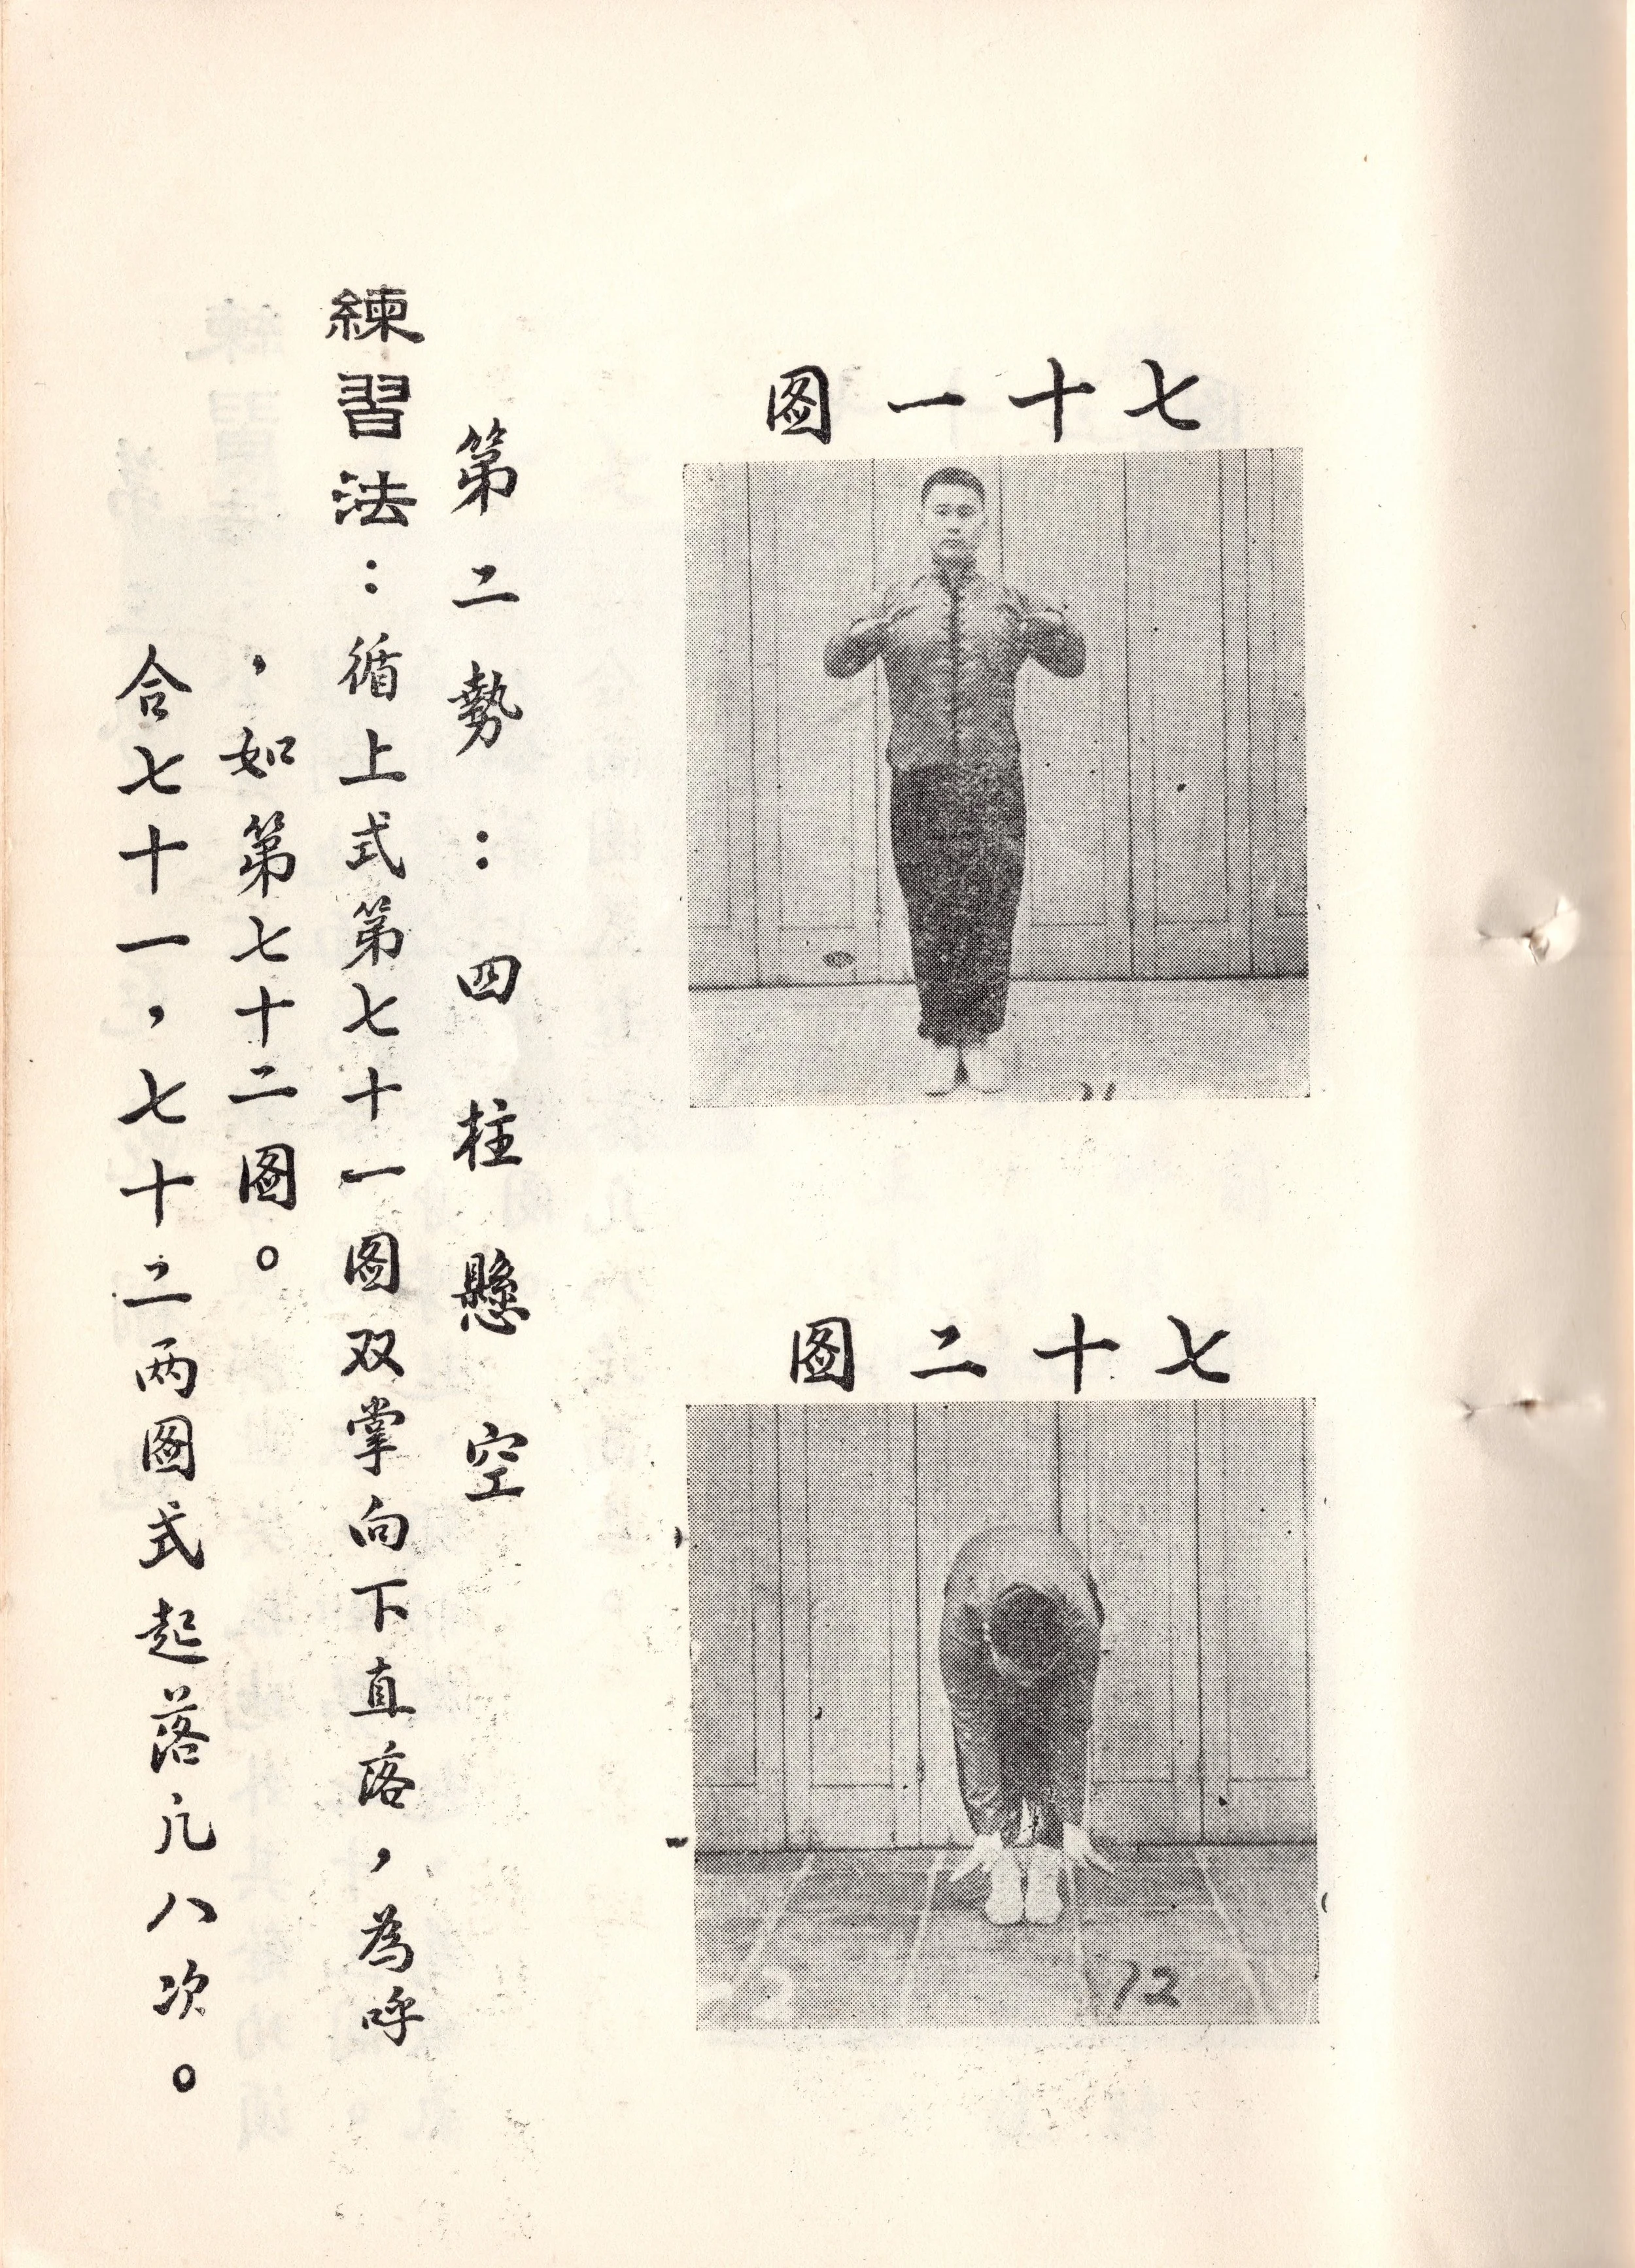 七十一图
71
七十二图
72
第二勢：四柱懸空
練習法：循上式第七十一图双掌向下直落，為呼
，如第七十二图。
合七十一，七十二两图式起落凢八次。